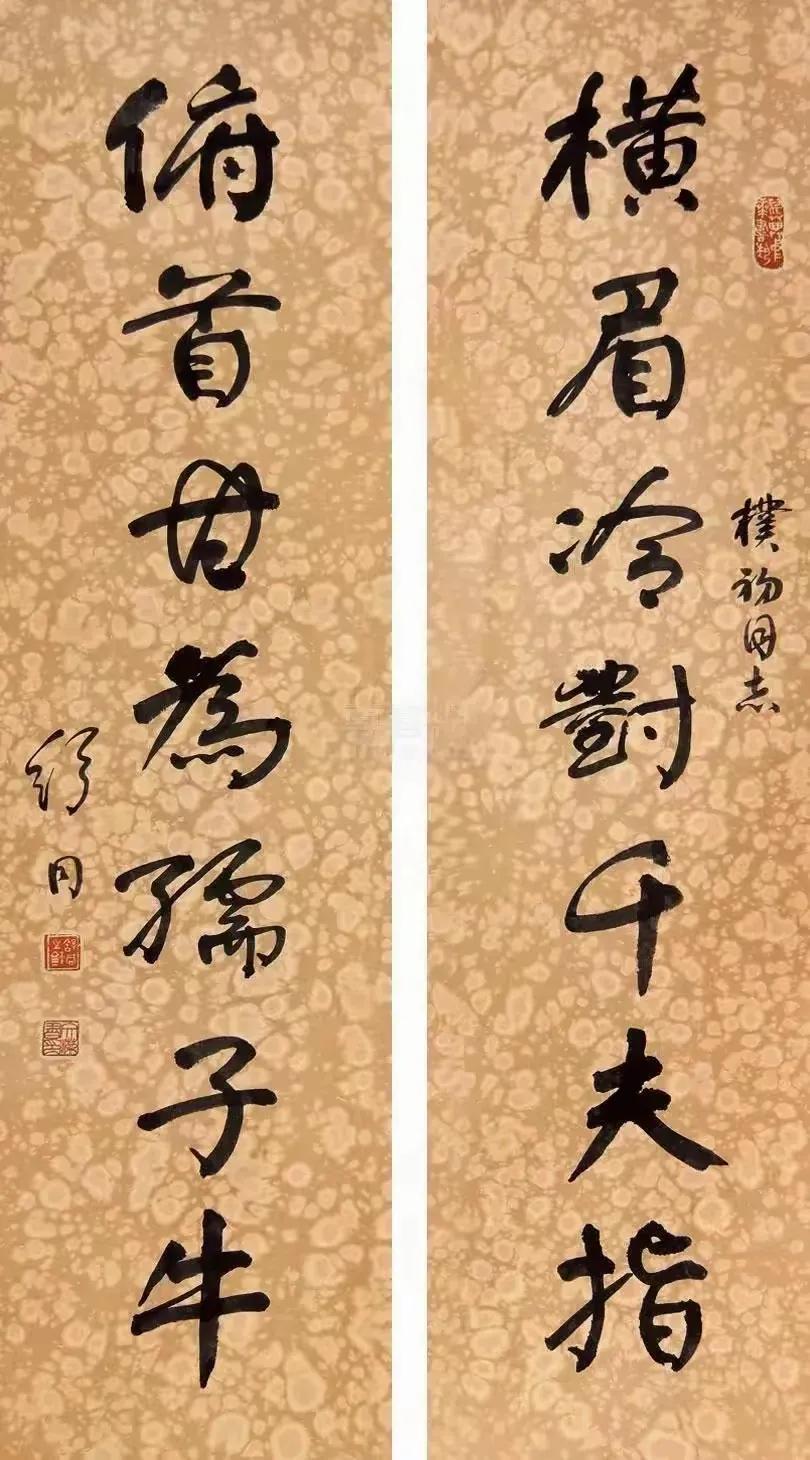 橫眉冷對千夫指
樸初同志
俯首甘為孺子牛
舒同